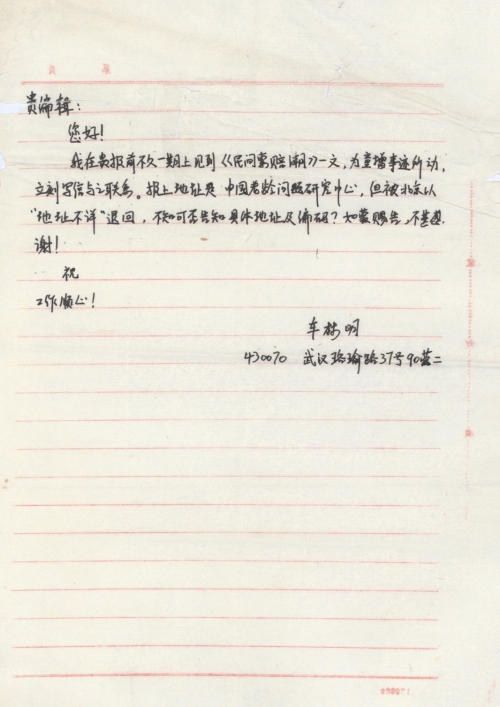 贵编辑：
您好！
我在贵报前不久一期上见到《民间索赔潮》一文，为童增事迹所动，
立刻写信与之联系。报上地址是中国老龄问题研究中心，但被北京以
“地址不详”退回，不知可否告知具体地址及邮码？如蒙赐告，不甚感
谢！
祝
工作顺心！
车 明
430070 武汉珞瑜路37号90营二